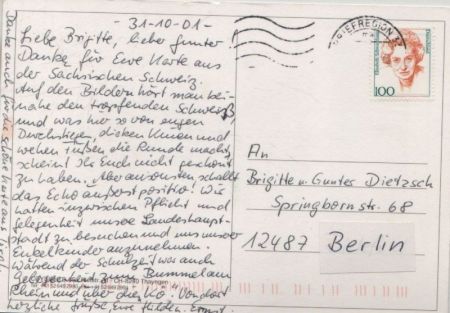 - 31-10-01 -
Liebe Brigitte, lieber Gunter!
Danke für Eure Karte aus
der Sächsischen Schweiz.
Auf den Bildern hört man bei-
nahe den tropfenden Schweiß
und was hier so von engen
Durchstiegen, dicken Knien und
wehen Füßen die Runde macht,
scheint Ihr Euch nicht geschont
zu haben. Aber ansonsten schallt
das Echo äußerst positiv! Wir
hatten inzwischen Pflicht und
Gelegenheit unsere Landeshaupt-
stadt zu besuchen und uns unserer
Enkelkinder anzunehmen.
Während der Schulzeit war auch
Gelegenheit zum Bummel am
Rhein und über die Kö. Von dort
herzliche Grüße, Eure Hilden. Ernst.
Danke auch für die schöne Karte aus
BRIEFREGION
100
An
Brigitte u Gunter Dietzsch
Springbornstr. 68
12487 Berlin
CH-8240 Thayngen